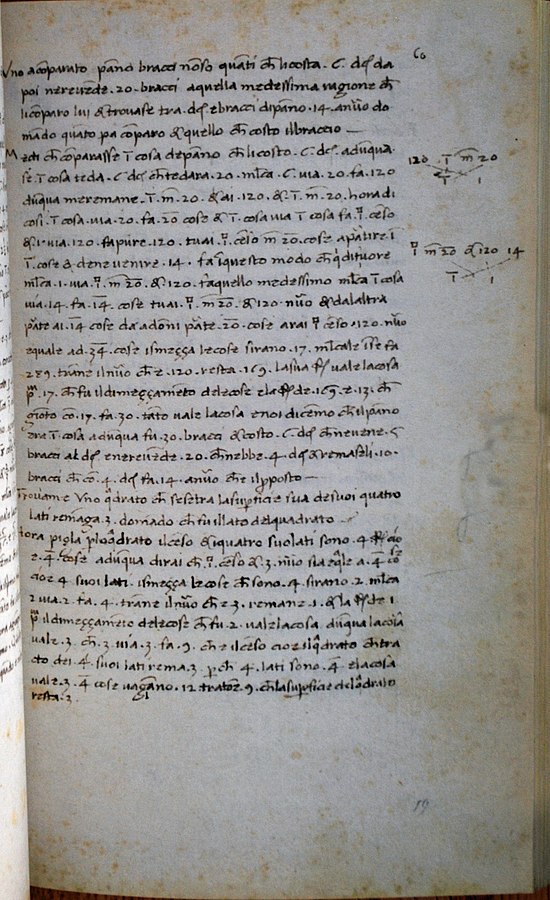 60
Uno acomparato panno bracci nonso quanti che licosta . C . dci da
poi nerevende . 20 . bracci aquella medessima ragione che
licomparo lui & trovase tra . dci ebracci dipano . 14 . numero do
mando quato pa comparo & quello che costo ilbraccio —
Metti che comparasse 1 cosa depano che li costo . C . dci . aduqua
se . 1 cosa teda . C . dci che tedara . 20 . mlca . C . via . 20 . fa . 120
duqua meremane . 1 . m . 20 . & ai . 120 . & . 1 . m . 20 . hora di
cosi . 1 cosa . via . 20 . fa . 20 cose & 1 . cosa via 1 cosa fa . censo
& . 1 . via . 120 . fa pure . 120 . tu ai . censo m 20 . cose apartire 1
1 . cosa & deve venire . 14 . fa in questo modo
mlca . 1 . via . m . 20 . & . 120 . fa quello medessimo mlca 1 cosa
via . 14 . fa . 14 . cose tu ai . m . 20 . & . 120 . numero & dalaltra
parte ai . 14 cose da adoni parte . 20 . cose arai censo . 120 . numero
equale ad . 34 . cose ismezza le cose sirano . 17 . mlcale in se fa
289 . trane il numero che e . 120 . resta . 169 . la sua vale la cosa
17 . che fu il dimezzameto dele cose e la de . 169 . e . 13 . che
gioto co . 17 . fa . 30 . tato vale la cosa e noi dicemo che il pano
era 1 cosa aduqua fu . 30 . bracci & costo . C . dci che nevene . 5
bracci al dci enerevende . 20 . che nebbe . 4 . dci & remaseli . 10 .
bracci che co . 4 . dci fa . 14 . numero che il proposto —
Trovame Uno quadrato che se se tra la superficie sua de suoi quatro
lati remaga . 3 . domado che fu il lato del quadrato —
hora piglia plo quadrato il censo & i quatro suo lati sono . 4 cio
e . 4 . cose aduqua dirai che censo & . 3 . numero sia equale a . 4 co
cioe 4 suoi lati . ismezza le cose che sono . 4 . sirano . 2 . mlca
2 via . 2 . fa . 4 . trane il numero che e 3 . remane . 1 . & la de . 1
il dimezzameto dele cose che fu . 2 . vale la cosa . duqua la cosa
vale . 3 . che . 3 . via . 3 . fa . 9 . che e il censo cioe il quadrato che tra
cto dei . 4 . suoi lati rema . 3 . perche . 4 . lati sono . 4 e la cosa
vale . 3 . 4 cose vagliano . 12 . tratone . 9 . che la superficie del quadrato
resta . 3 .
120 . 1 m 20
1 1
m 20 & 120 14
1 1
59